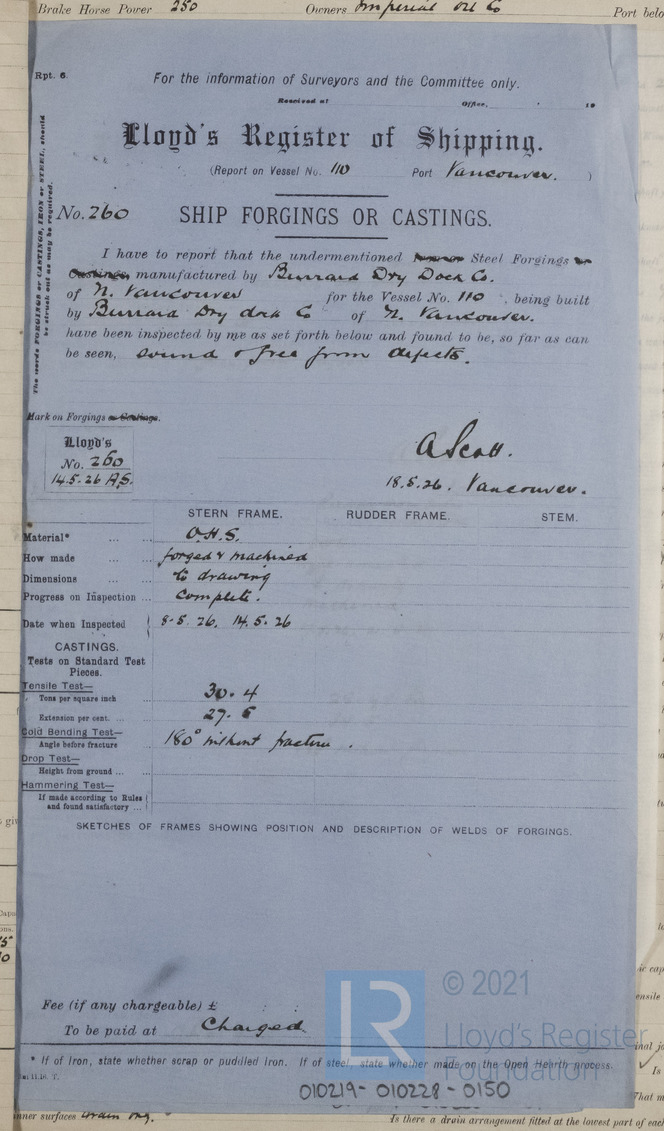 Brake Horse Power 250 Owners Imperial Oil Co Port belo
Rpt. 6.
For the information of Surveyors and the Committee only.
Received at Office, 19
Lloyd's Register of Shipping.
(Report on Vessel No. 110 Port Vancouver. )
The words FORGINGS or CASTINGS, IRON or STEEL, should
be struck out as may be required.
No. 260 SHIP FORGINGS OR CASTINGS.
I have to report that the undermentioned Steel Forgings or
Castings, manufactured by Burrard Dry Dock Co.
of N. Vancouver for the Vessel No. 110, being built
by Burrard Dry dock Co of N. Vancouver.
have been inspected by me as set forth below and found to be, so far as can
be seen, sound & free from defects.
Mark on Forgings or Castings.
Lloyd's
No. 260
14.5.26 A.S.
A Scott.
18.5.26. Vancouver.
STERN FRAME. RUDDER FRAME. STEM.
Material* ... ... O.H.S.
How made ... ... forged & machined
Dimensions ... ... to drawing
Progress on Inspection ... complete.
Date when Inspected 8-5.26. 14.5.26
CASTINGS.
Tests on Standard Test
Pieces.
Tensile Test—
Tons per square inch ... 30.4
Extension per cent. ... ... 27.5
Cold Bending Test—
Angle before fracture ... 180° without fracture.
Drop Test—
Height from ground ... ...
Hammering Test—
If made according to Rules
and found satisfactory ...
SKETCHES OF FRAMES SHOWING POSITION AND DESCRIPTION OF WELDS OF FORGINGS.
Fee (if any chargeable) £ : :
To be paid at Charged
LR
© 2021
Lloyd's Register
Foundation
* If of Iron, state whether scrap or puddled Iron. If of steel, state whether made on the Open Hearth process.
010219-010228-0150
nner surfaces drain only. Is there a drain arrangement fitted at the lowest part of each